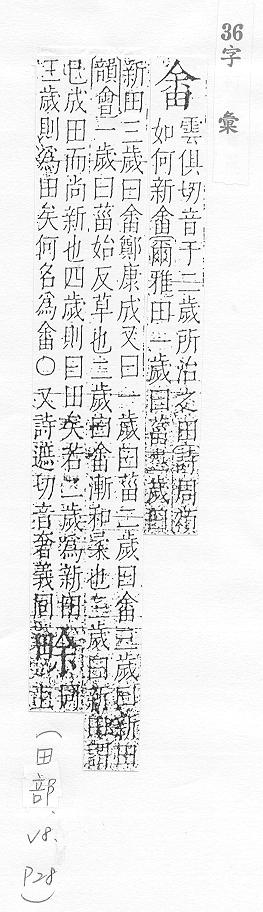 36字 彙
畬
雲俱切音于三歲所治之田詩周頌
如何新畬爾雅田一歲曰菑二歲曰
新田三歲曰畬鄭康成又曰一歲曰菑二歲曰畬三歲曰新田
韻會一歲曰菑始反草也二歲曰畬漸和柔也三歲曰新田謂
已成田而尚新也四歲則曰田矣若二歲為新田
三歲則為田矣何名為畬○又詩遮切音奢義同
畭
同
上
(田部、V8、P28)